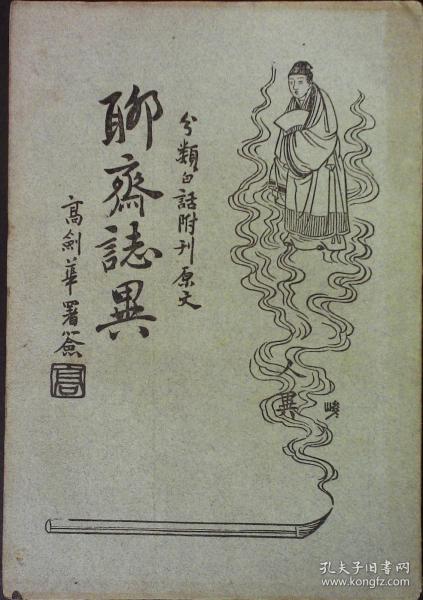 分類白話附刊原文
聊齋誌異
高劍華署簽
高
人異
孔夫子旧书网
www.kongfz.com